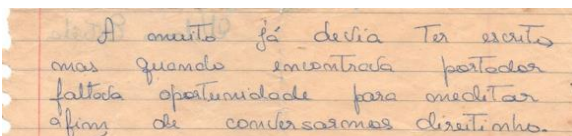 A muito já devia ter escrito
mas quando encontrava portador
faltava oportunidade para meditar
afim de conversarmos direitinho.